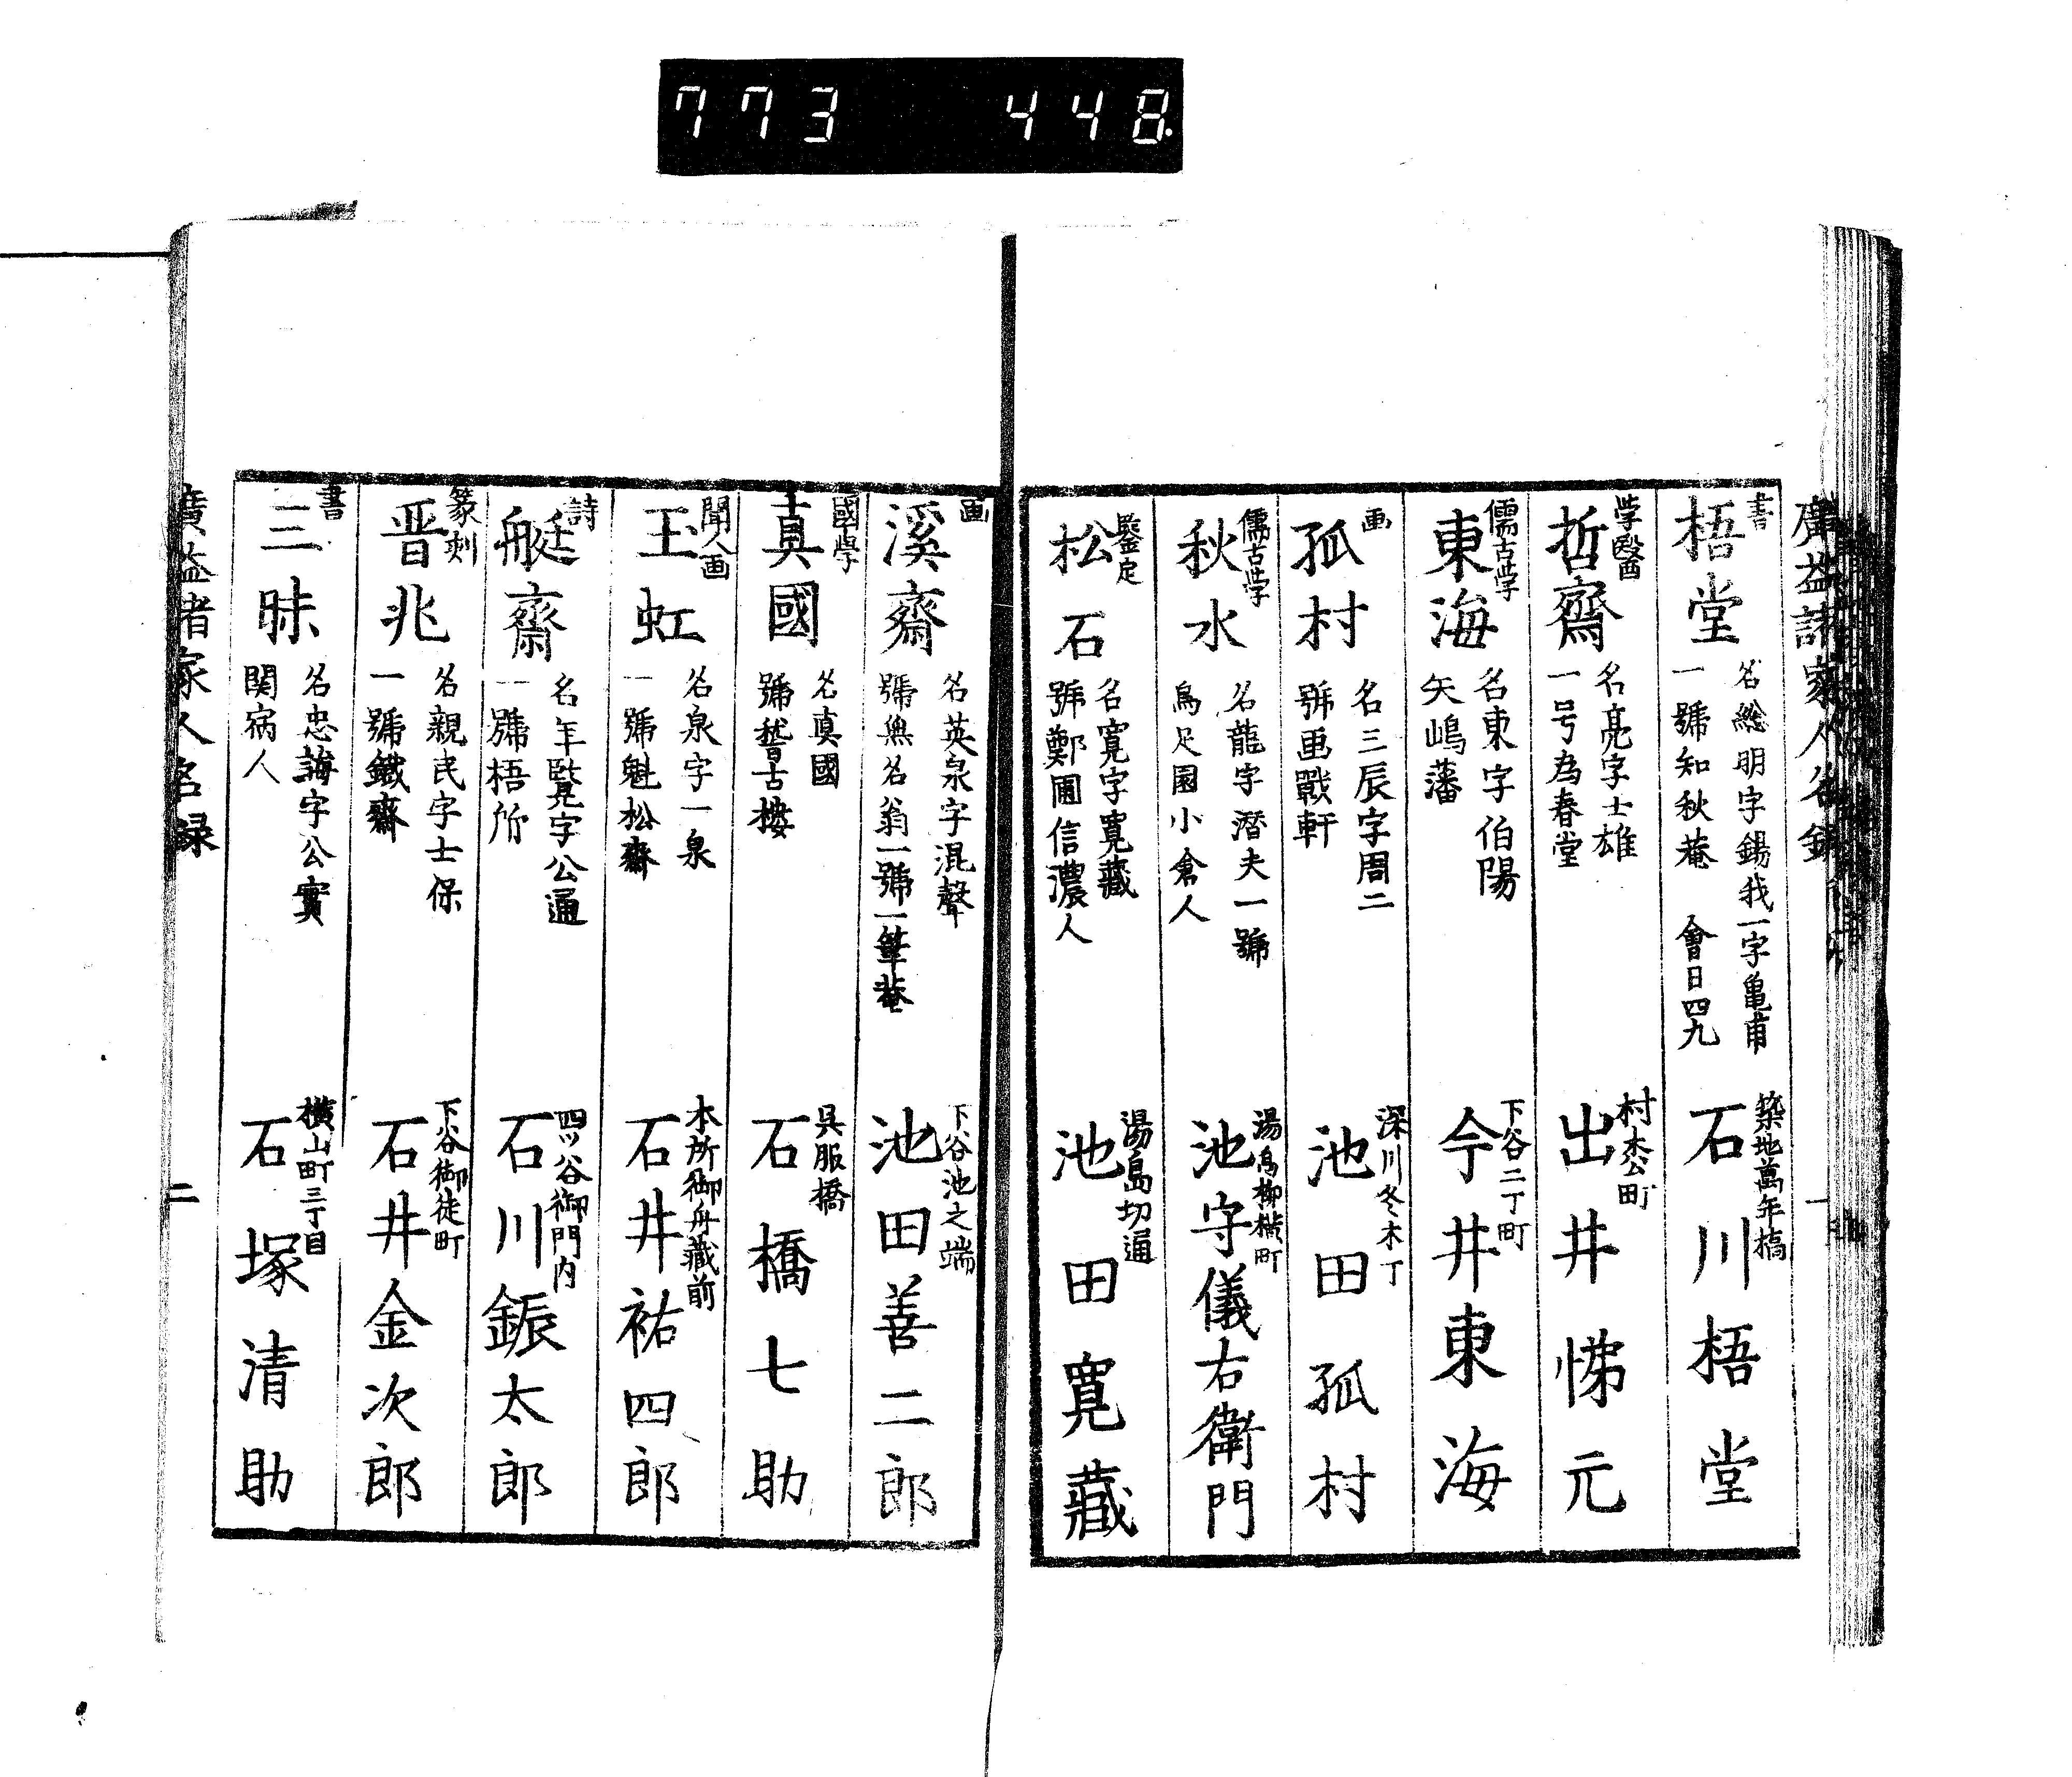 773 448
廣益諸家人名録
一
書
梧堂
名總明字錫我一字亀甫
一號知秋菴 會日四九
築地萬年橋
石川梧堂
学醫
哲齋
名亮字士雄
一号為春堂
村松町
出井悌元
儒古学
東海
名東字伯陽
矢嶋藩
下谷二丁町
今井東海
画
孤村
名三辰字周二
號画戰軒
深川冬木丁
池田孤村
儒古学
秋水
名龍字潛夫一號
烏足園小倉人
湯島柳横町
池守儀右衛門
鑒定
松石
名寛字寛藏
號鄭圃信濃人
湯島切通
池田寛藏
画
溪齋
名英泉字混聲
號無名翁一號一筆菴
下谷池之端
池田善二郎
國学
真國
名真國
號稽古樓
呉服橋
石橋七助
聞人画
玉虹
名泉字一泉
一號魁松齋
本所御舟藏前
石井祐四郎
詩
艇齋
名年鑒字公通
一號梧所
四ッ谷御門内
石川鋠太郎
篆刻
晋兆
名親民字士保
一號鐵齋
下谷御徒町
石井金次郎
書
三昧
名忠誨字公實
関病人
横山町三丁目
石塚清助
廣益諸家人名録
二